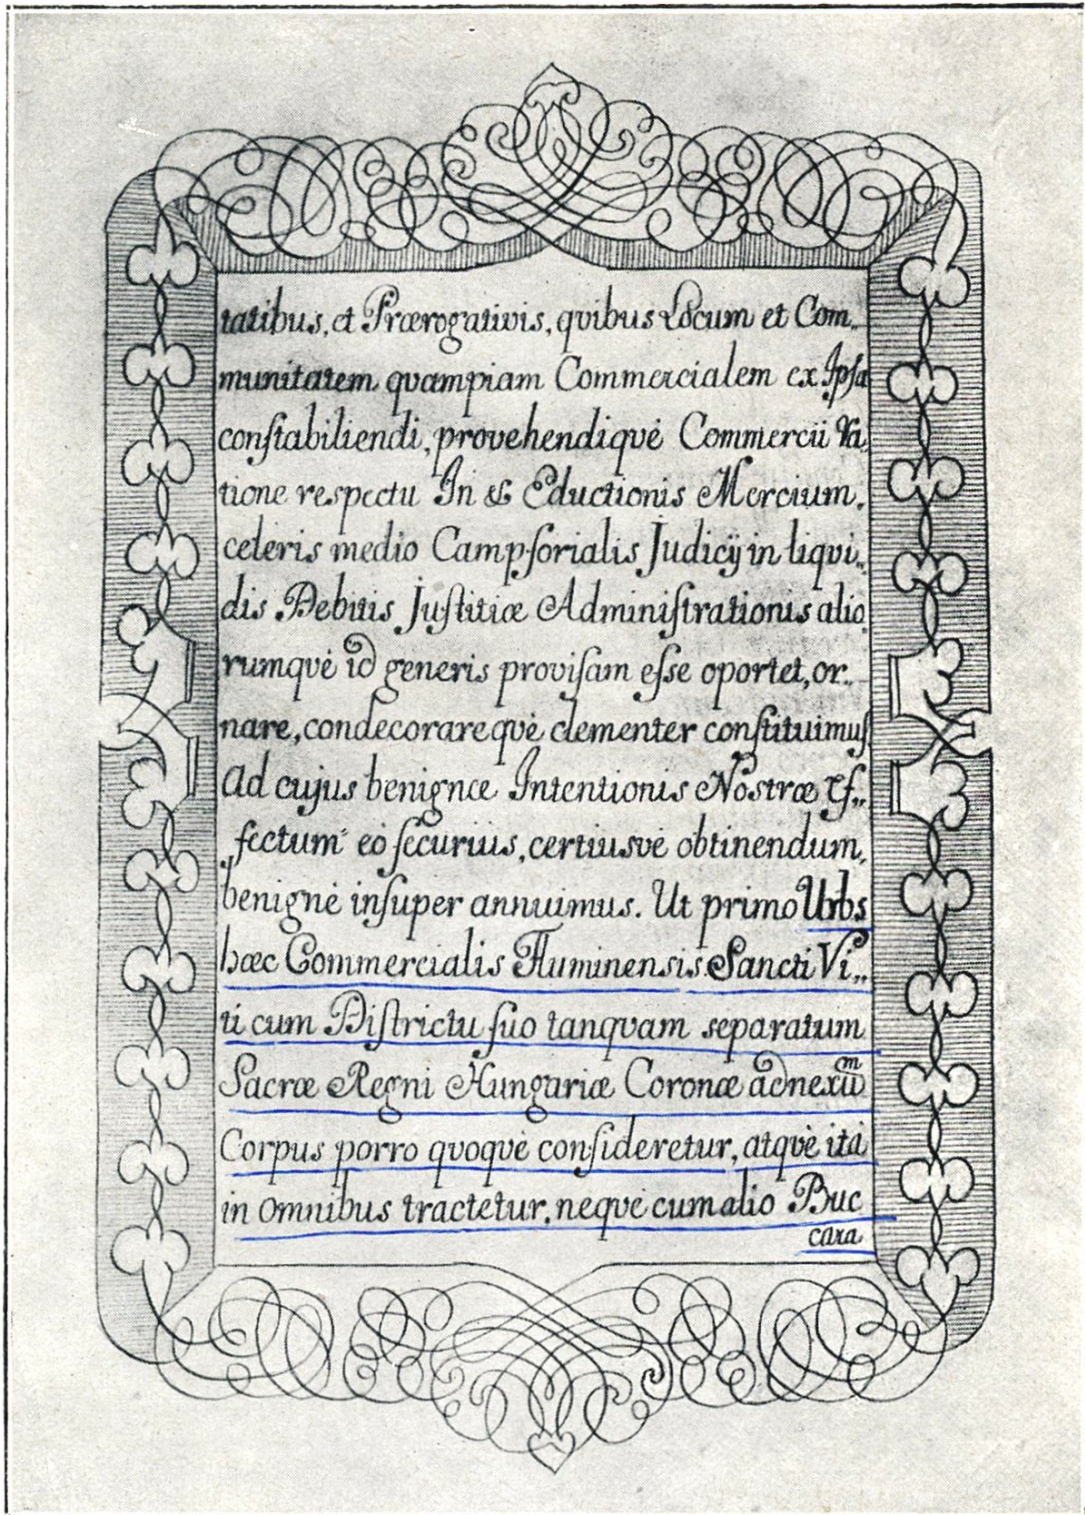 tatibus, et Prærogativis, quibus Locum et Com„
munitatem quampiam Commercialem ex Ipsa
conſtabiliendi, provehendiquè Commercii Ra„
tione respectu In & Eductionis Mercium,
celeris medio Campſorialis Judicÿ in liqui„
dis Debitis Juſtitiæ Adminiſtrationis alio„
rumquè id generis proviſam eſse oportet, or„
nare, condecorarequè clementer conſtituimuſ
Ad cujus benignæ Intentionis Noſtræ Ef„
„fectum eò ſecuriùs, certiusvè obtinendum,
benignè inſuper annuimus. Ut primo Urbs
hæc Commercialis Fluminensis Sancti Vi„
ti cum Diſtrictu ſuo tanquam separatum
Sacræ Regni Hungariæ Coronæ adnexũm
Corpus porro quoquè conſideretur, atquè ità
in omnibus tractetur, nequè cum alio Buc
cara